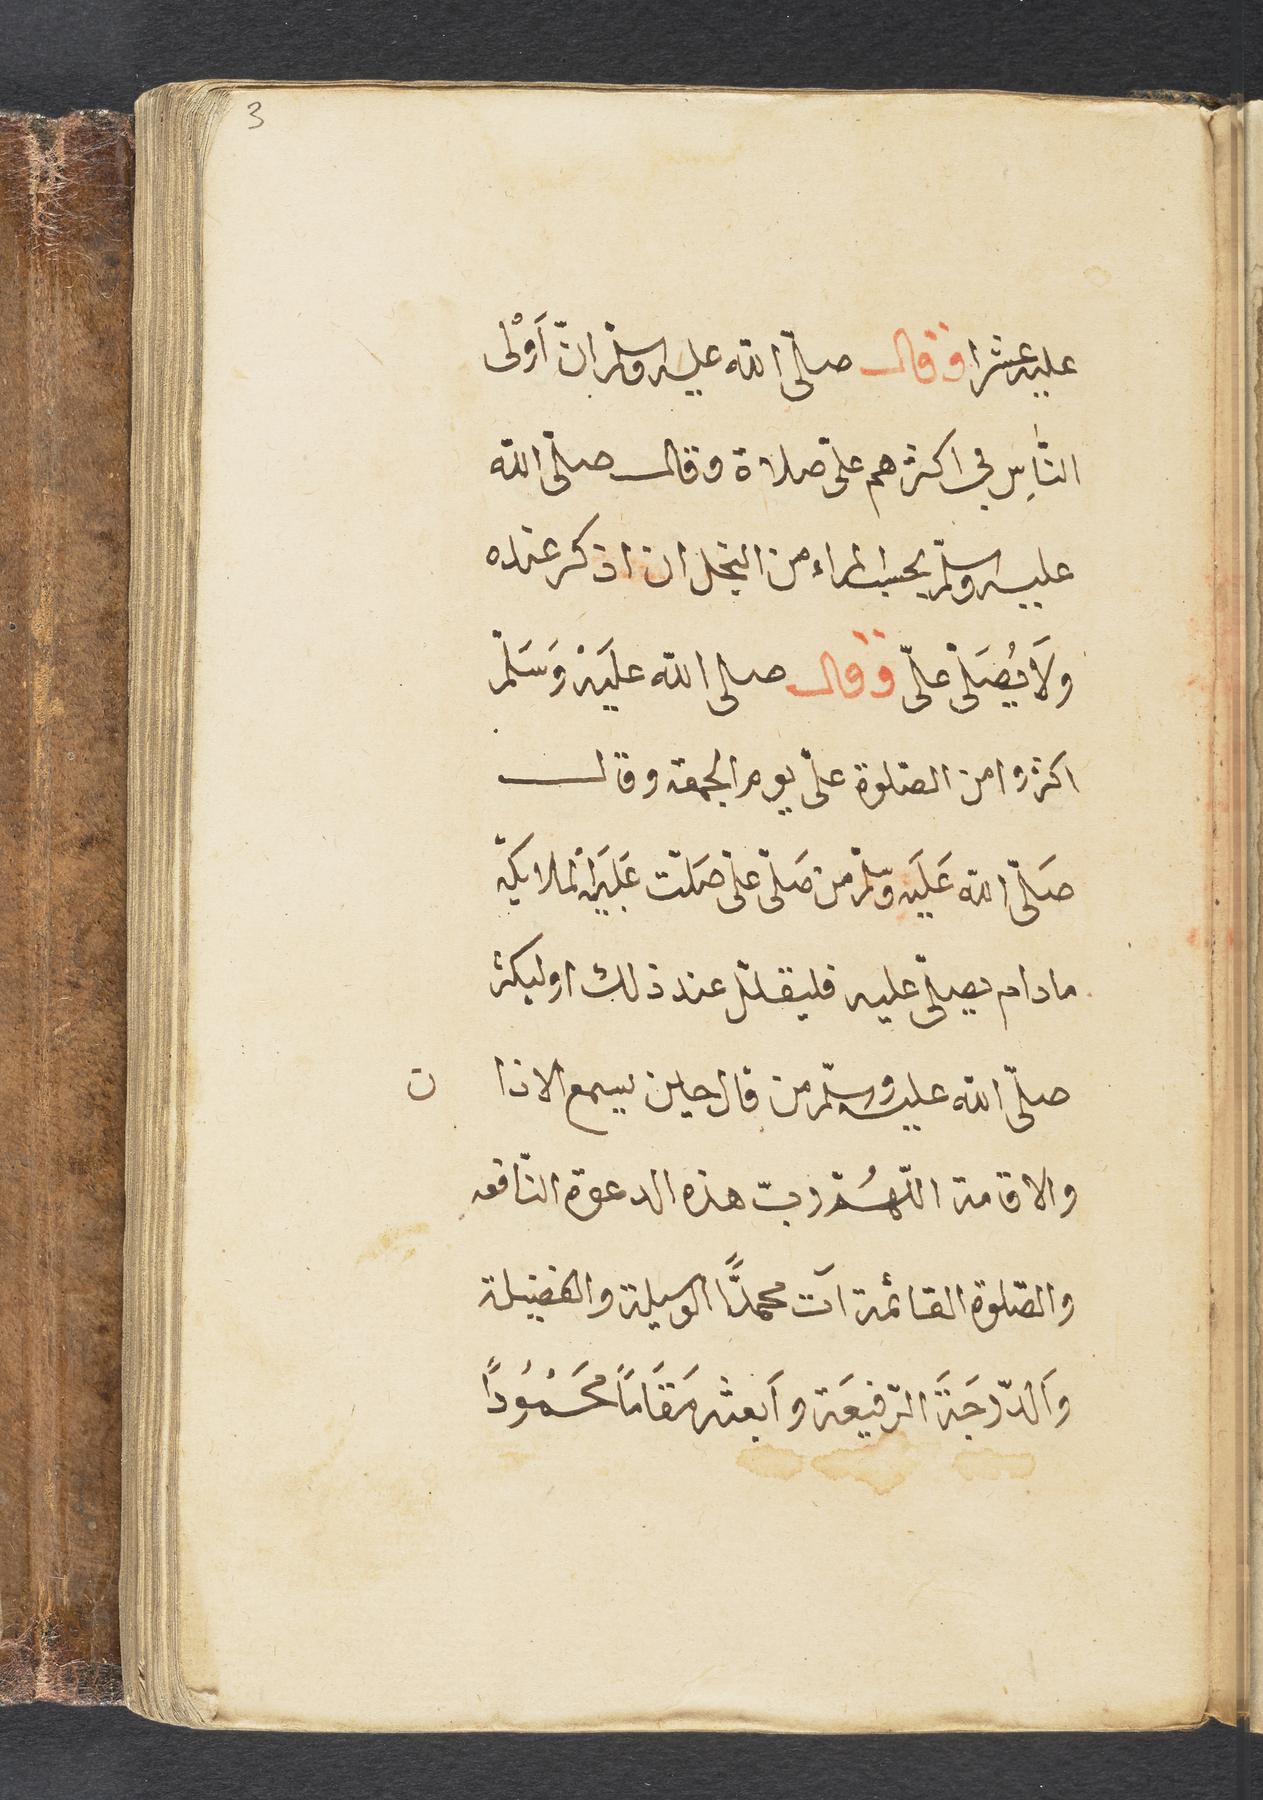 3
عليه عشرا وقال صلّى الله عليه وسلّم انّ أَوْلى
النّاسِ بي اكثرهم علىّ صلاة وقال صلّى الله
عليه وسلّم بحسب المراء من البخل ان اذكر عنده
ولَا يُصَلّى علىّ وقال صلى الله عليَه وَسَلّمْ
اكثروا من الصّلوة علىّ يوم الجمعة وقال
صَلّى الله عَلَيَه وسّلّم من صَلّى علىّ صَلّت عَلَيَه الملايكة
مادام يصلّى عليه فليقلّل عند ذلك اوليكثر
صلّى الله عليه وسلّم من قال حاين يسمع الاذا ن
والاقامة اللّهُمّ ربّ هذه الدعوة النّافعه
والصّلوة القائمة آت محمدًّا الوسيلة والفضيلة
وَالدّرَجَةَ الرّفيعَة وَابعثه مَقَامًا مَحْمُوُدًا